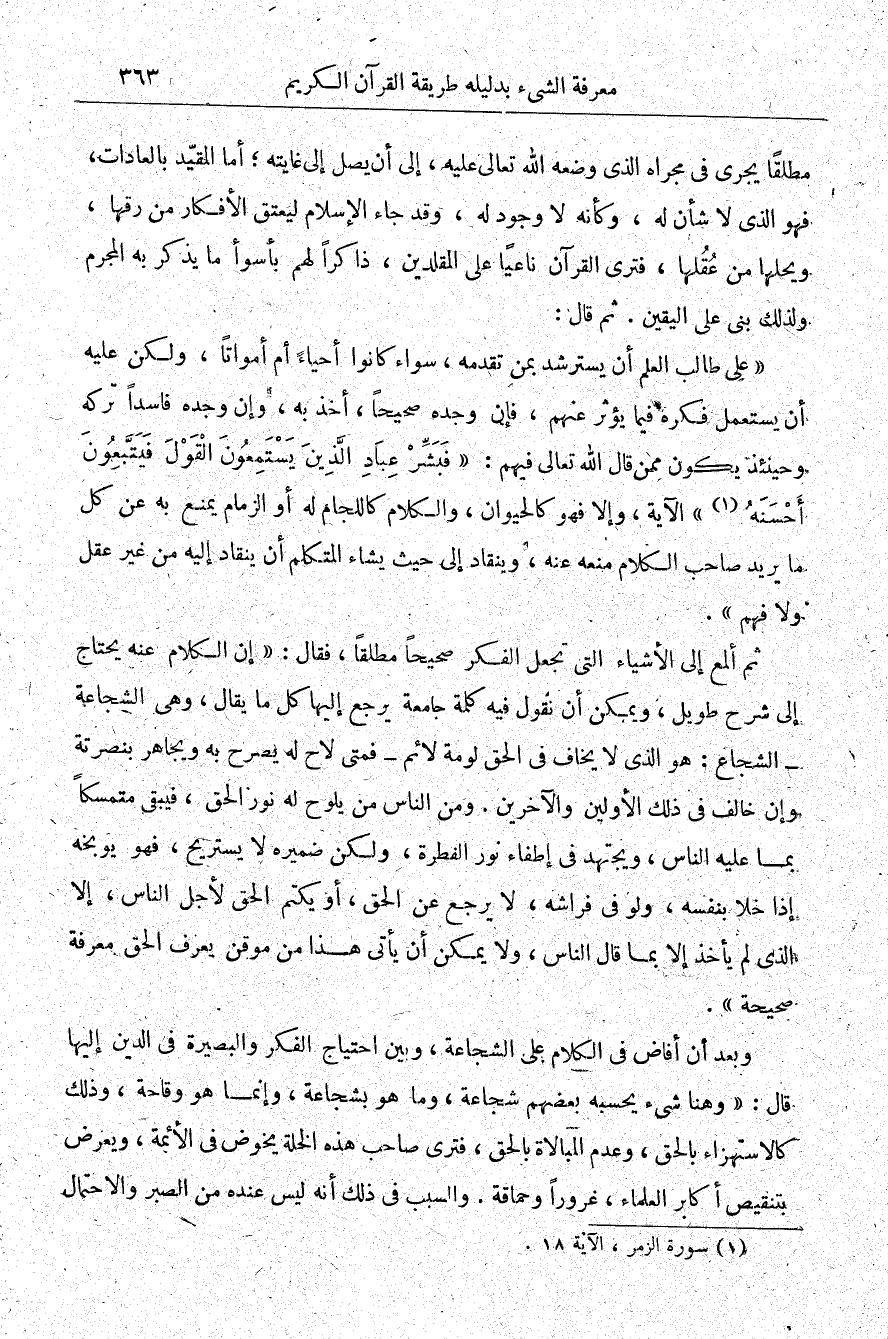 معرفة الشىء بدليله طريقة القرآن الكريم ٣٦٣
مطلقًا يجرى فى مجراه الذى وضعه الله تعالى عليه، إلى أن يصل إلى غايته؛ أما المقيّد بالعادات،
فهو الذى لا شأن له، وكأنه لا وجود له، وقد جاء الإسلام ليعتق الأفكار من رقها،
ويحلها من عُقُلها، فترى القرآن ناعيًا على المقلدين، ذاكراً لهم بأسوأ ما يذكر به المجرم
ولذلك بنى على اليقين. ثم قال:
« على طالب العلم أن يسترشد بمن تقدمه، سواء كانوا أحياءً أم أمواتاً، ولكن عليه
أن يستعمل فكره فيما يؤثر عنهم، فإن وجده صحيحاً، أخذ به، وإن وجده فاسداً تركه
وحينئذ يكون ممن قال الله تعالى فيهم: « فَبَشِّرْ عِبَادِ الَّذِينَ يَسْتَمِعُونَ الْقَوْلَ فَيَتَّبِعُونَ
أَحْسَنَهُ (١) » الآية، وإلا فهو كالحيوان، والكلام كاللجام له أو الزمام يمنع به عن كل
ما يريد صاحب الكلام منعه عنه، وينقاد إلى حيث يشاء المتكلم أن ينقاد إليه من غير عقل
ولا فهم ».
ثم ألمع إلى الأشياء التى تجعل الفكر صحيحاً مطلقاً، فقال: « إن الكلام عنه يحتاج
إلى شرح طويل، ويمكن أن نقول فيه كلمة جامعة يرجع إليها كل ما يقال، وهى الشجاعة
ـ الشجاع: هو الذى لا يخاف فى الحق لومة لائم ـ فمتى لاح له يصرح به ويجاهر بنصرتة
وإن خالف فى ذلك الأولين والآخرين. ومن الناس من يلوح له نور الحق، فيبقى متمسكاً
بما عليه الناس، ويجتهد فى إطفاء نور الفطرة، ولكن ضميره لا يستريح، فهو يوبخه
إذا خلا بنفسه، ولو فى فراشه، لا يرجع عن الحق، أو يكتم الحق لأجل الناس، إلا
الذى لم يأخذ إلا بما قال الناس، ولا يمكن أن يأتى هذا من موقن يعرف الحق معرفة
صحيحة ».
وبعد أن أفاض فى الكلام على الشجاعة، وبين احتياج الفكر والبصيرة فى الدين إليها
قال: « وهنا شىء يحسبه بعضهم شجاعة، وما هو بشجاعة، وإنما هو وقاحة، وذلك
كالاستهزاء بالحق، وعدم المبالاة بالحق، فترى صاحب هذه الخلة يخوض فى الأئمة، ويعرض
بتنقيص أكابر العلماء، غروراً وحماقة. والسبب فى ذلك أنه ليس عنده من الصبر والاحتمال
(١) سورة الزمر، الآية ١٨.